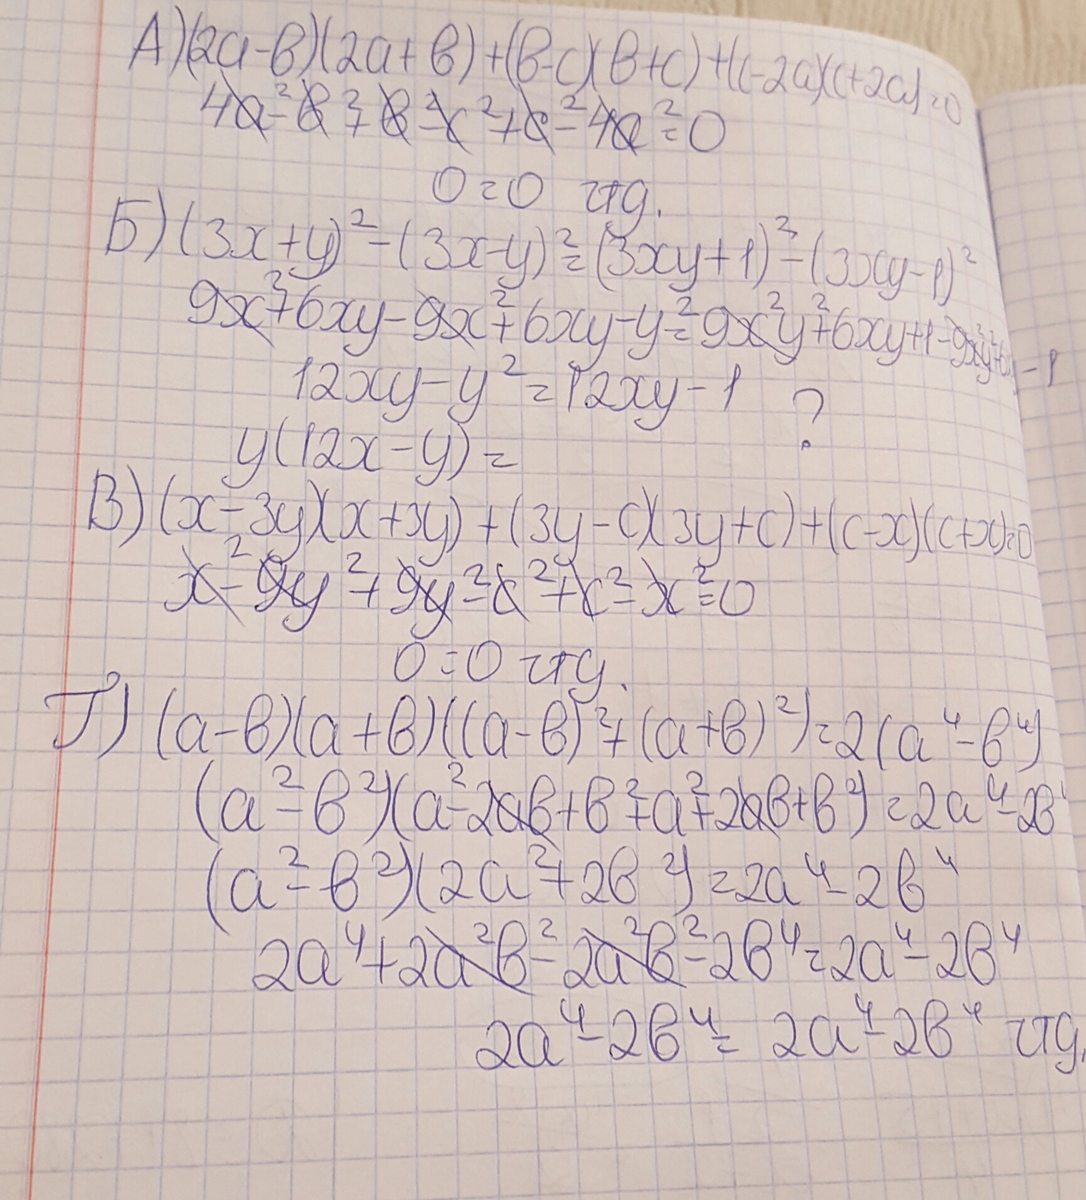 А) (2а-в)(2а+в)+(в-с)(в+с)+(с-2а)(с+2а)=0
4а²-в²+в²-с²+с²-4а²=0
0=0 чтд.
Б) (3x+y)²-(3x-y)²=(3xy+1)²-(3xy-1)²
9x²+6xy-9x²+6xy-y²=9x²y²+6xy+1-9x²y²+6xy-1
12xy-y²=12xy-1 ?
y(12x-y)=
В) (x-3y)(x+3y)+(3y-c)(3y+c)+(c-x)(c+x)=0
x²-9y²+9y²-c²+c²-x²=0
0=0 чтд.
Г) (а-в)(а+в)((а-в)²+(а+в)²)=2(а⁴-в⁴)
(а²-в²)(а²-2ав+в²+а²+2ав+в²)=2а⁴-2в⁴
(а²-в²)(2а²+2в²)=2а⁴-2в⁴
2а⁴+2а²в²-2а²в²-2в⁴=2а⁴-2в⁴
2а⁴-2в⁴=2а⁴-2в⁴ чтд.